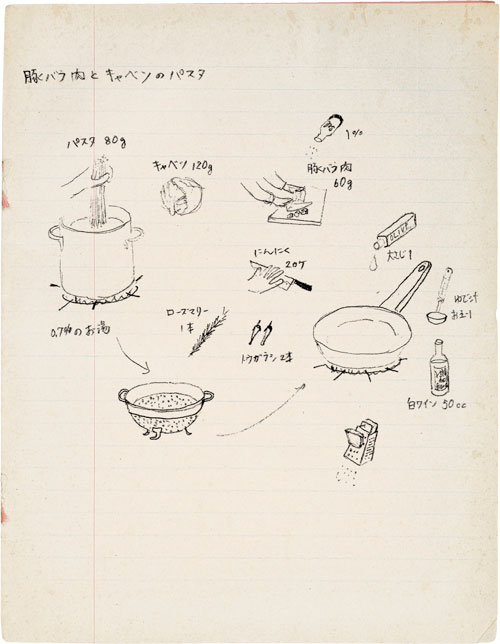 豚バラ肉とキャベツのパスタ
パスタ 80g
キャベツ 120g
1%
豚バラ肉
60g
にんにく
2ケ
OLIVE
大さじ1
ローズマリー
1本
トウガラシ 2本
ゆで汁
お玉1
0.7%のお湯
白ワイン 50cc